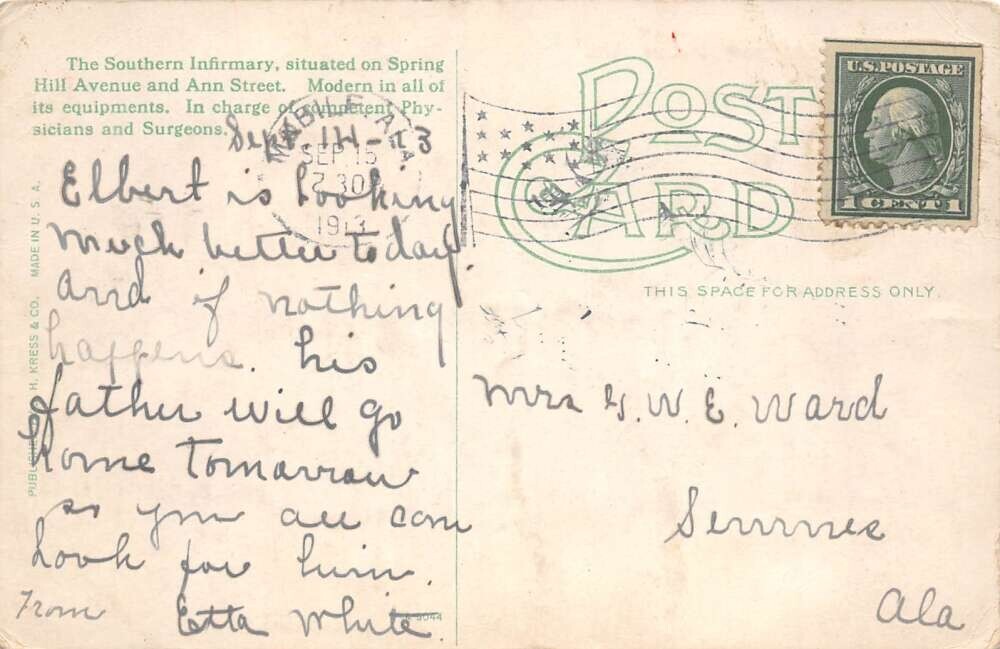 The Southern Infirmary, situated on Spring
Hill Avenue and Ann Street. Modern in all of
its equipments. In charge of competent Phy-
sicians and Surgeons.
Sept 14-13
Elbert is looking
much better today.
and if nothing
happens. his
father will go
home Tomarrow
so you all can
look for him.
From Etta White
MADE IN U. S. A.
H. KRESS & CO.
MOBILE, ALA
SEP 15
7 30
1913
POST
CARD
U.S. POSTAGE
1 CENT 1
THIS SPACE FOR ADDRESS ONLY.
Mrs G. W. E. Ward
Semmes
Ala